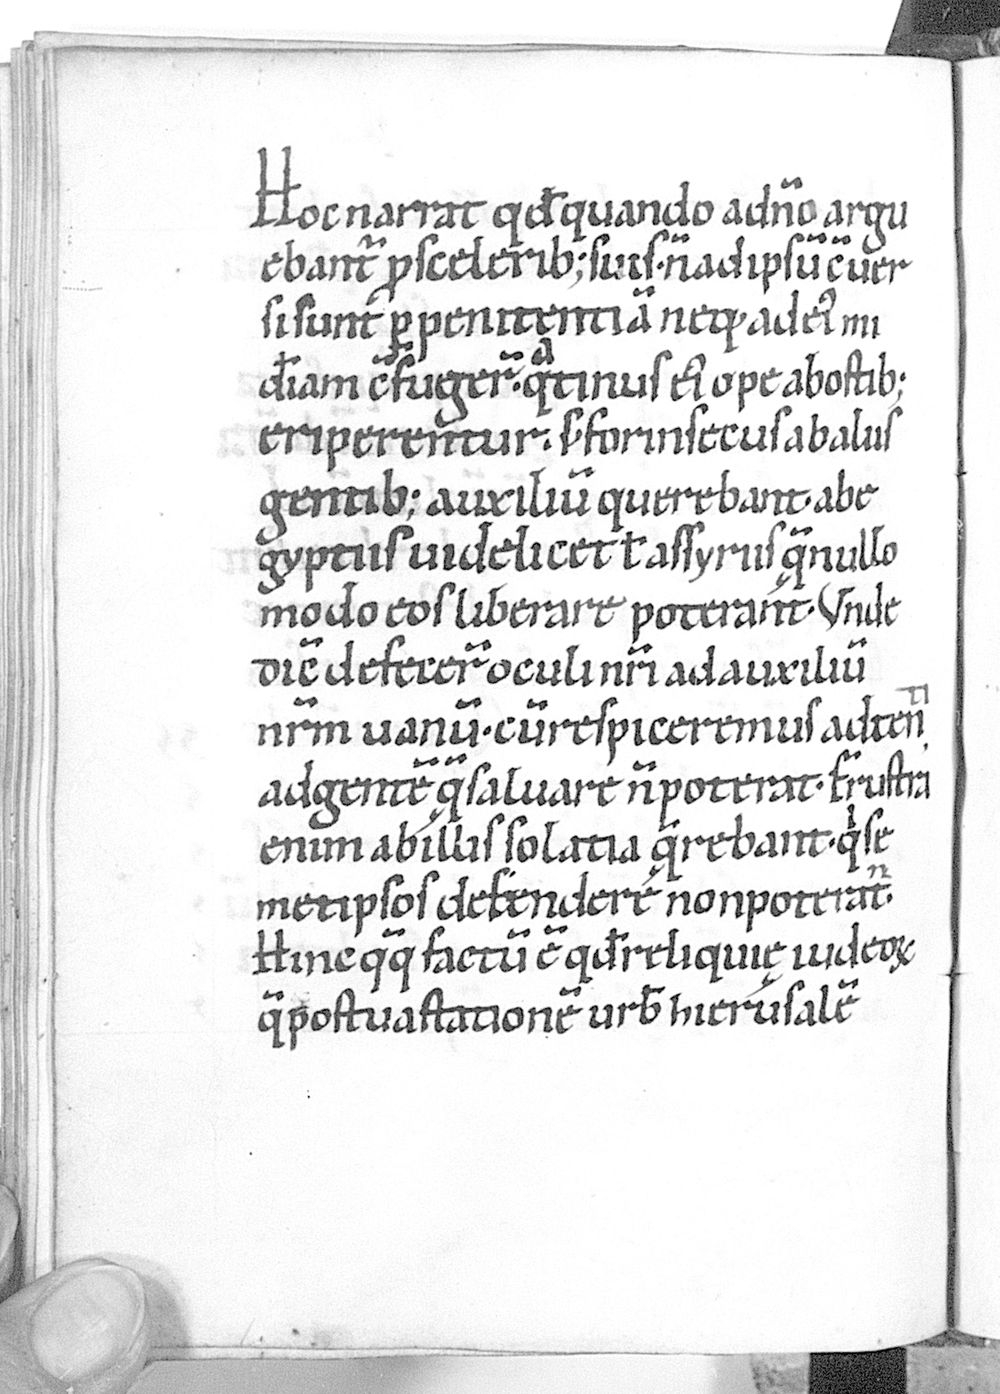 Hoc narrat qđ quando adn̄o argu
ebant̄ ꝓ scelerib; suis· n̄ ad ipsū c̄uer
si sunt ꝑ penitentiā neq; ad eiꝰ mi
điam c̄fuger̄· qͣtinus eiꝰ ope ab ostib;
eriperent̄ur· s; forinsecus ab alus
gentib; auxiliū querebant· ab e
gyptus uidelicet ł assyrus q̄ nullo
modo eos liberare poterant· Vnde
dic̄ defecer̄ oculi nr̄i ad auxiliū
nr̄m uanū· cū respiceremus adten
ti
ad gentē q̄ saluare n̄ poterat· Frustra
enim ab illis solatia q̄rebant· qͥ se
metipsos defendere non poterant·
Hinc q̄q̄ factū ē qđ reliquię iudeoꝝ
q̄ post uastationē urƀ hierusalē